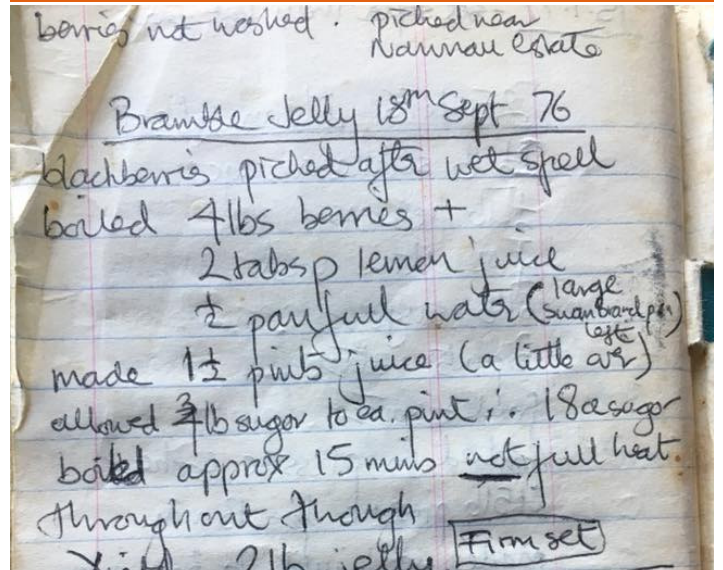 berries not washed. picked near
Nannau Estate
Bramble Jelly 18th Sept 76
blackberries picked after wet spell
boiled 4lbs berries +
2 tabsp lemon juice
½ panfull water (large
made 1½ pints juice. (a little over)
allowed ¾lb sugar to ea. pint ∴ 18oz sugar
boiled approx 15 mins not full heat.
throughout though
Yield 2lb jelly Firm set